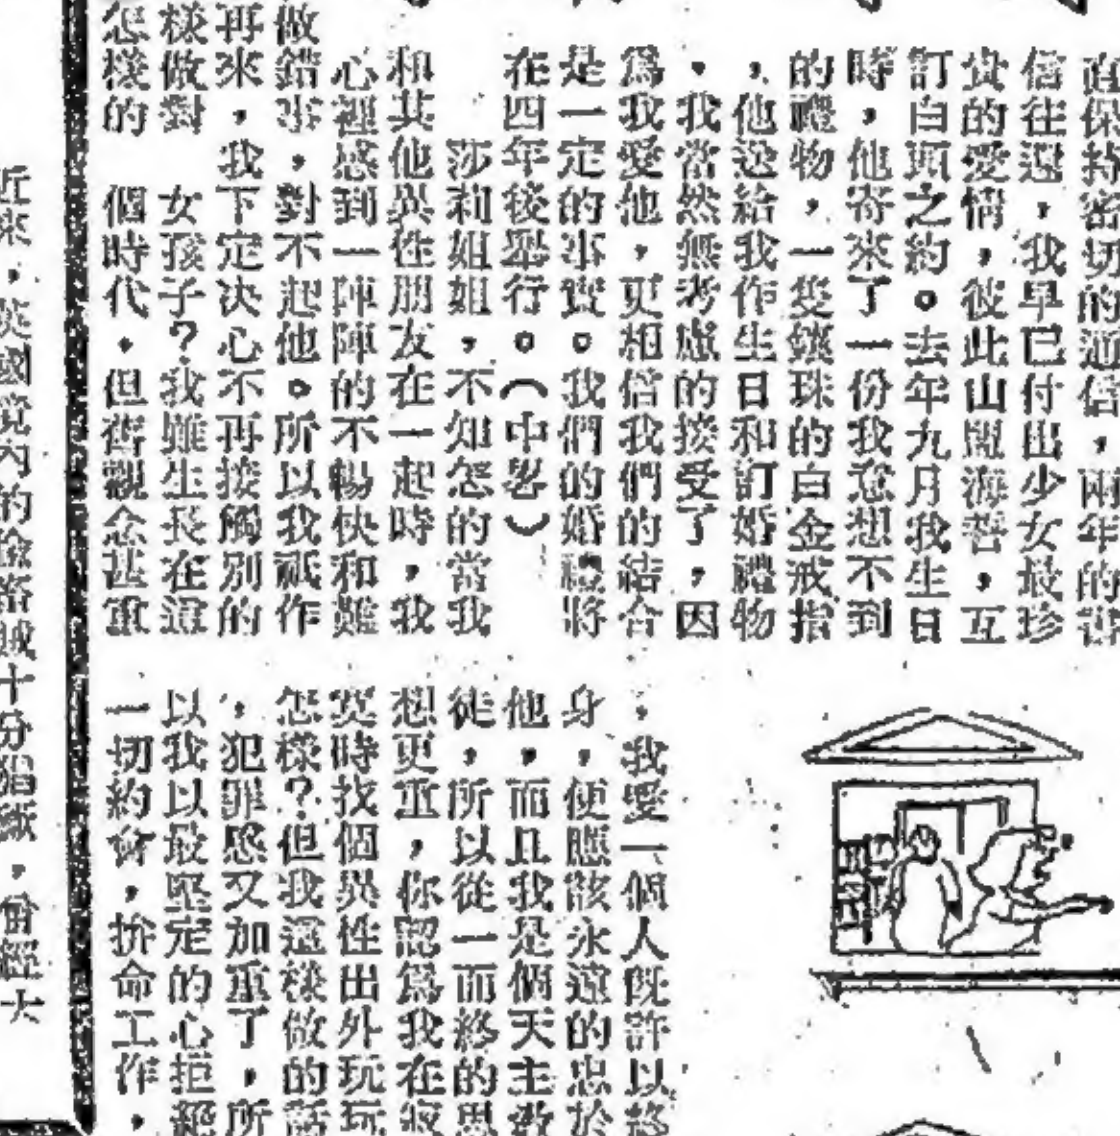 直保持密切的通信,兩年的書
信往還,我早已付出少女最珍
貴的愛情,彼此山盟海誓,互
訂白頭之約。去年九月我生日
時,他寄來了一份我意想不到
的禮物,一隻鑲珠的白金戒指
,他送給我作生日和訂婚禮物
,我當然無考慮的接受了,因
爲我愛他,更相信我們的結合
是一定的事實。我們的婚禮將
在四年後舉行。(中畧)
莎莉姐姐,不知怎的當我
和其他異性朋友在一起時,我
心裡感到一陣陣的不暢快和難
做錯事,對不起他。所以我祇作
再來,我下定決心不再接觸別的
樣做對
女孩子?我雖生長在這
怎樣的
個時代,但舊觀念甚重
,我愛一個人旣許以終
身,便應該永遠的忠於
他,而且我是個天主教
徒,所以從一而終的思
想更重,你認爲我在寂
寞時找個異性出外玩玩
怎樣?但我這樣做的話
,犯罪感又加重了,所
以我以最堅定的心拒絕
一切約會,拚命工作,
近來,英國境內的
賊十分猖獗,曾經大